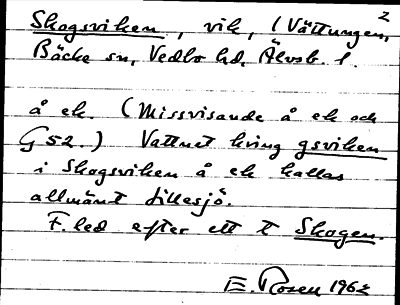 2
Skogsviken, vik, (Vättungen,
Bäcke sn, Vedbo hd, Älvsb. l.
å ek. (Missvisande å ek och
G 52.) Vattnet kring gsviken
i Skogsviken å ek kallas
allmänt Lillesjö.
F.led efter ett t Skogen.
E. Rosen 1962